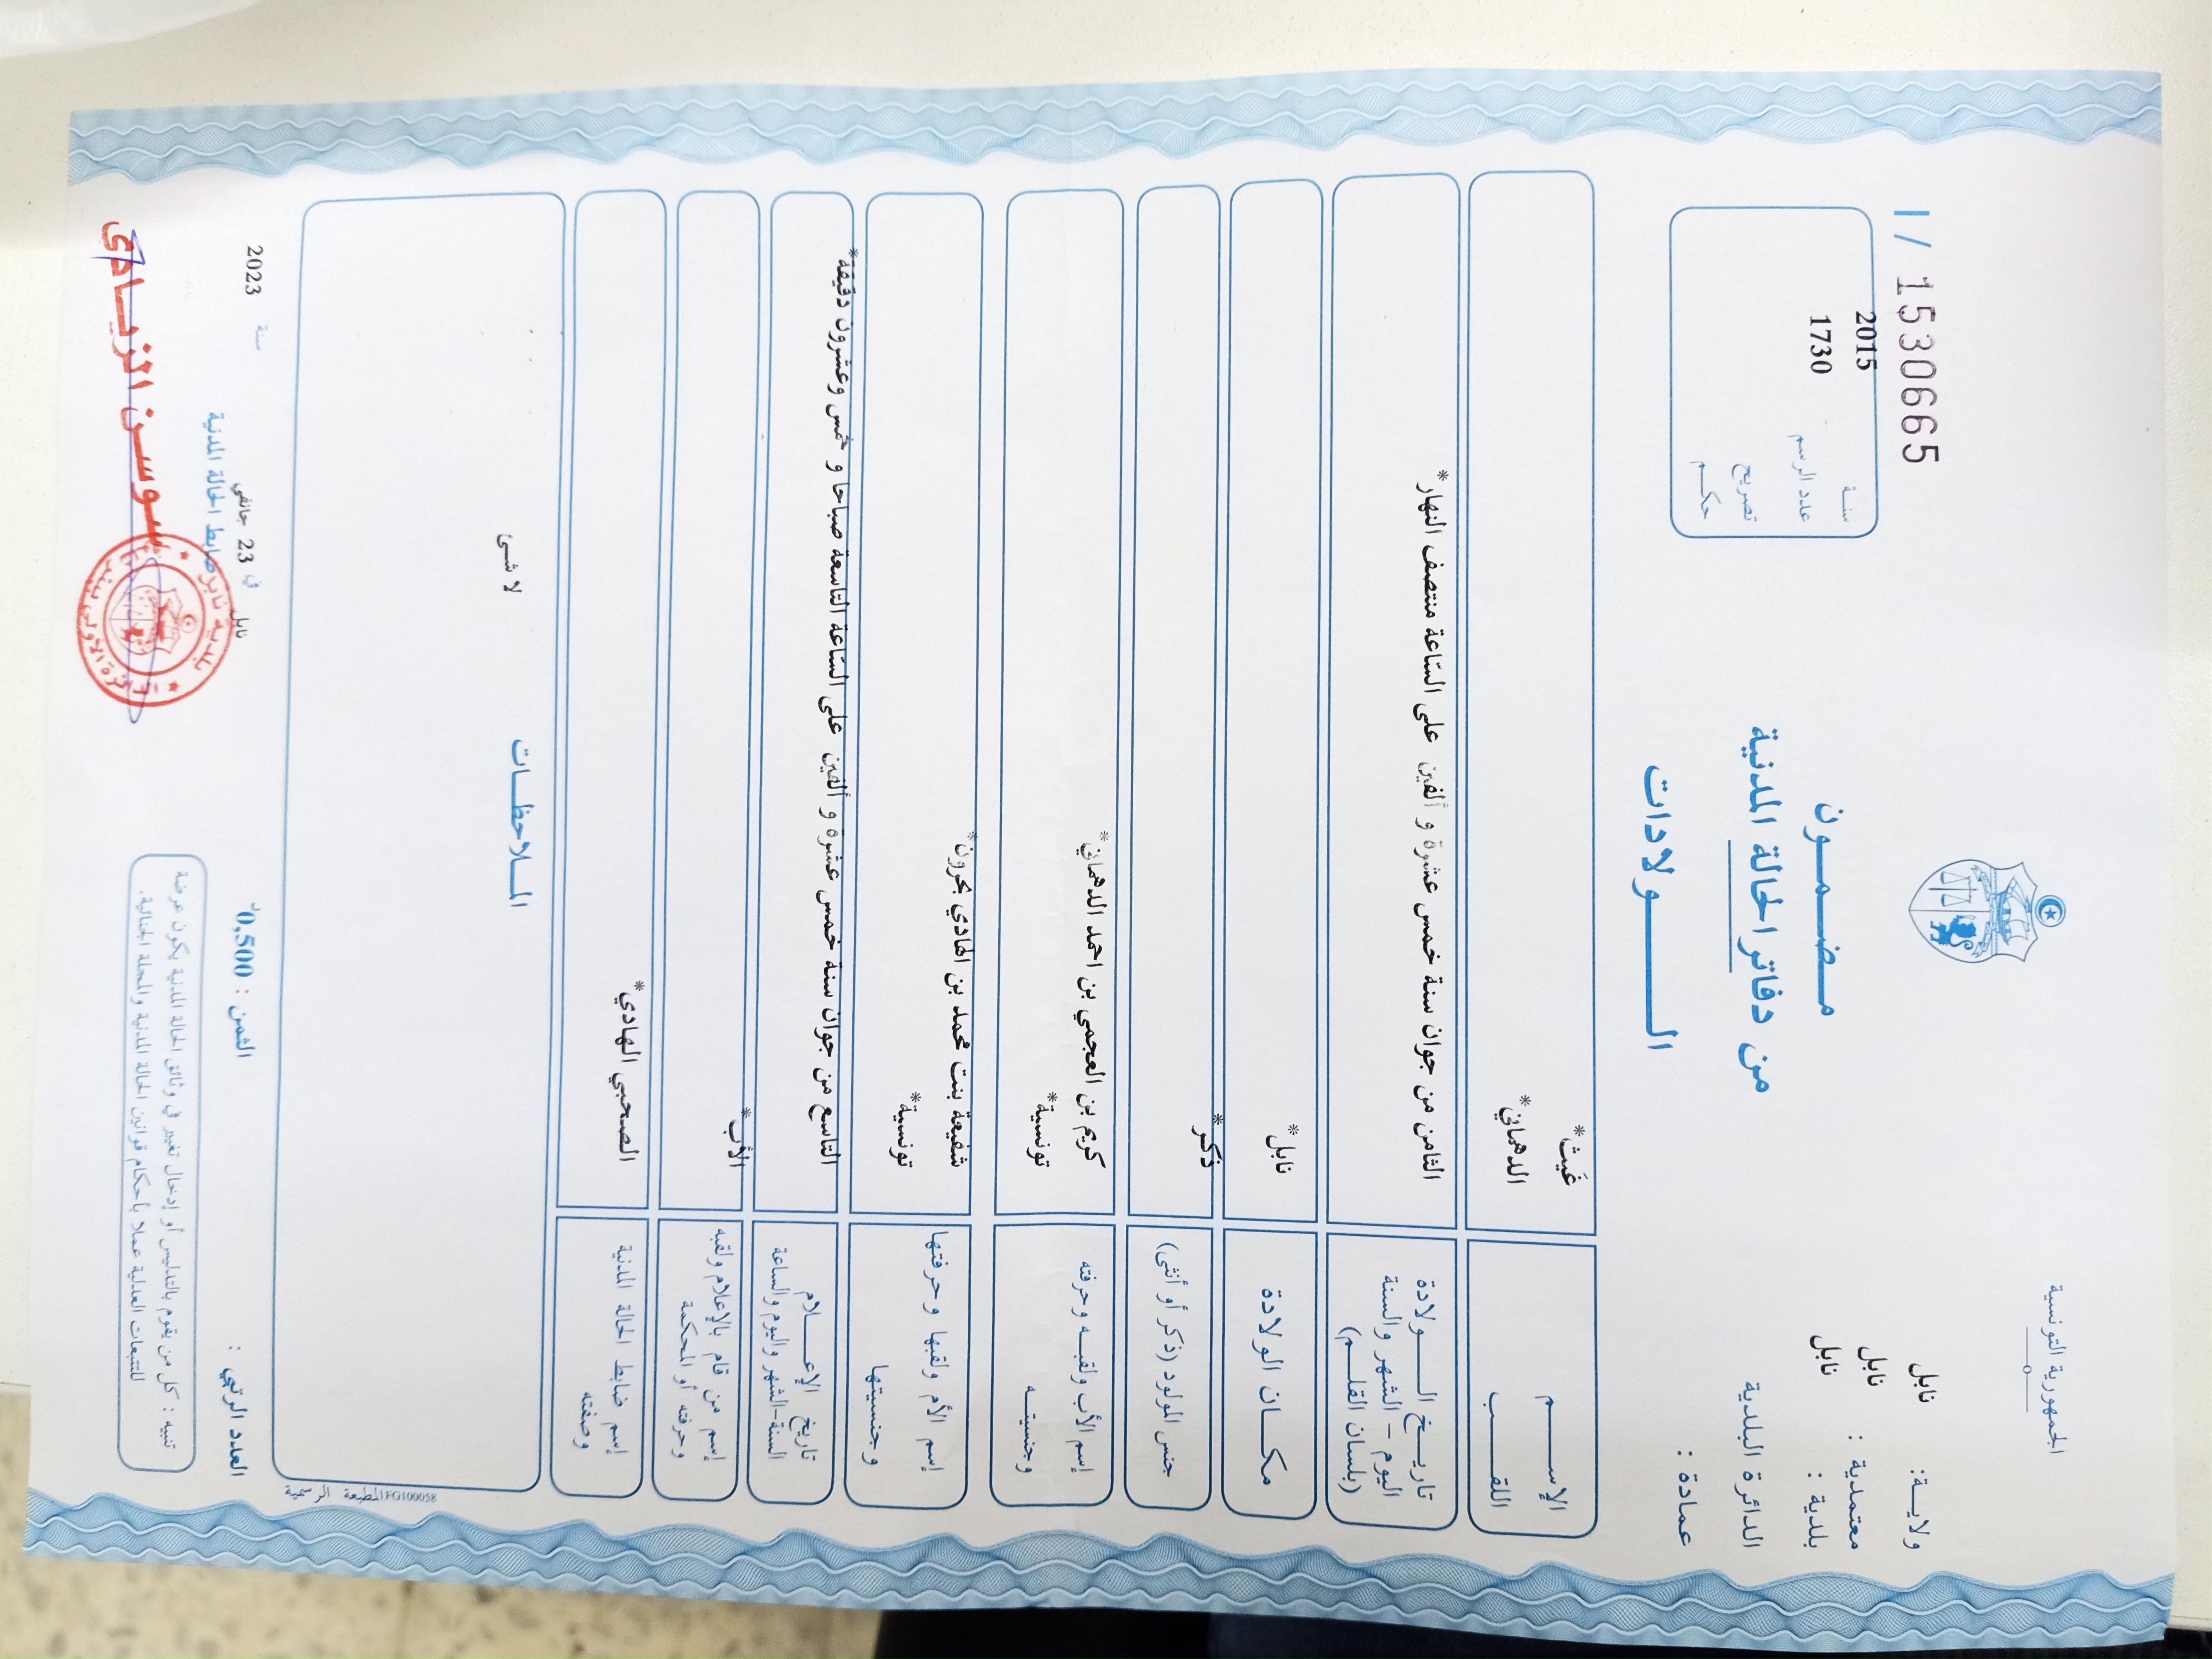 الجمهورية التونسية
ولايــة: نابل
معتمدية : نابل
بلدية : نابل
الدائرة البلدية
عمادة :
I/ 1530665
سنــة 2015
عدد الرسم 1730
تصريح
حكـــم
مــضــمــــون
من دفاتر الحالة المدنية
الــــــولادات
الإســــــم غَيث*
اللقــــــب الدهماني*
تاريــخ الــــولادة
اليوم – الشهر والسنة
(بلسان القلـــم)
الثامن من جوان سنة خمس عشرة و ألفين على السّاعة منتصف النهار*
مكـــان الولادة نابل*
جنس المولود (ذكر أو أنثى) ذكر*
إسم الأب ولقبــه وحرفته كريم بن العجمي بن احمد الدهماني*
وجنسيتــه تونسية*
إسم الأم ولقبها وحرفتها شفيعة بنت محمد بن الهادي بحرون*
وجنسيتها تونسية*
تاريخ الإعــــلام
السنة-الشهر واليوم والساعة
التاسع من جوان سنة خمس عشرة و ألفين على السّاعة التاسعة صباحا و خمس وعشرون دقيقة*
إسم من قام بالإعلام ولقبه
وحرفته أو المحكمة
الأب*
إسم ضابط الحالة المدنية
وصفته
الصحبي الهادي*
المــلاحظــات
لا شئ
المطبعة الرسمية FG100058
العدد الرتبي :
الثمن : 0,500د
نابل في 23 جانفي سنة 2023
ضابط الحالة المدنية
سوسن الزيادي
بلدية نابل
تنبيه : كل من يقوم بالتدليس أو إدخال تغيير في وثائق الحالة المدنية يكون عرضة
للتتبعات العدلية عملا بأحكام قوانين الحالة المدنية والمجلة الجنائية.